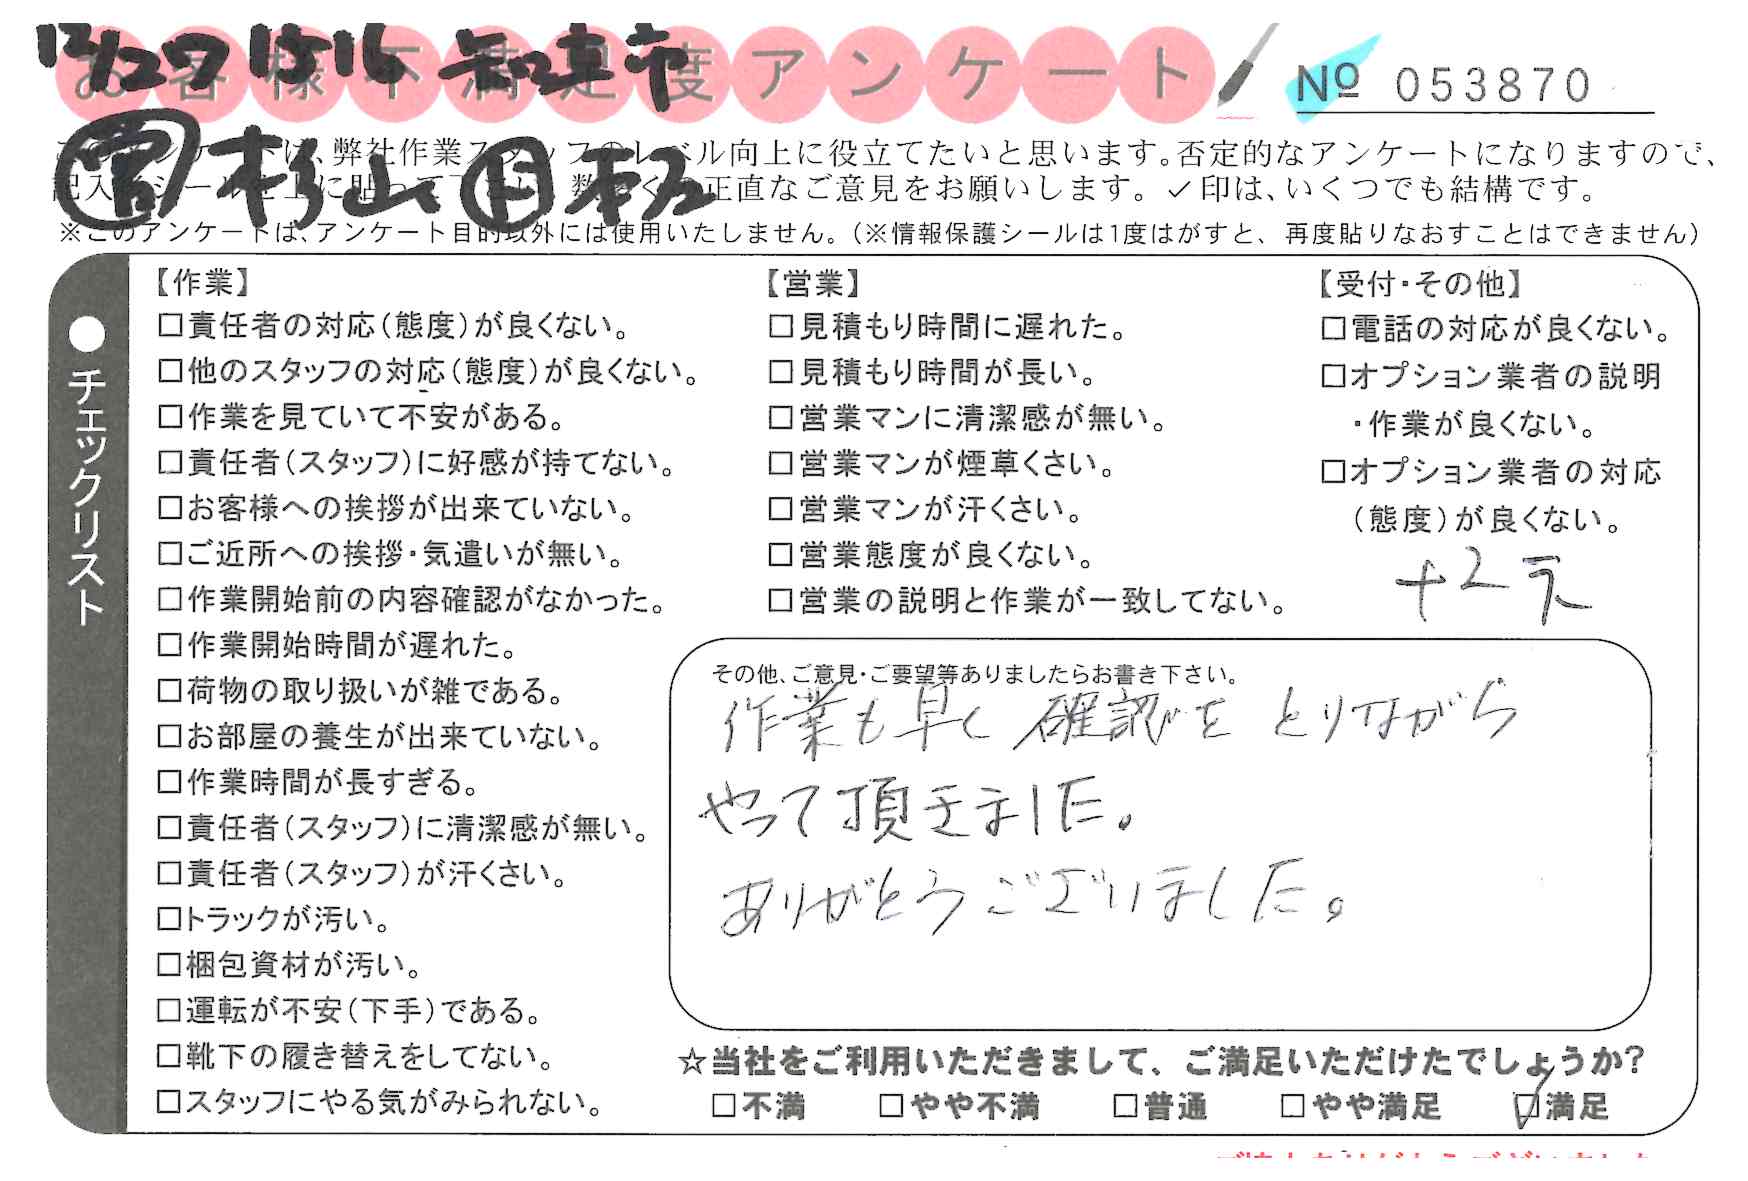 12/27 1515 知立市
お客様不満足度アンケート
№ 053870
営 杉山 作
このアンケートは、弊社作業スタッフのレベル向上に役立てたいと思います。否定的なアンケートになりますので、
記入 シール 上に貼って 正直なご意見をお願いします。✓印は、いくつでも結構です。
※このアンケートは、アンケート目的以外には使用いたしません。(※情報保護シールは1度はがすと、再度貼りなおすことはできません)
●チェックリスト
【作業】
□責任者の対応(態度)が良くない。
□他のスタッフの対応(態度)が良くない。
□作業を見ていて不安がある。
□責任者(スタッフ)に好感が持てない。
□お客様への挨拶が出来ていない。
□ご近所への挨拶・気遣いが無い。
□作業開始前の内容確認がなかった。
□作業開始時間が遅れた。
□荷物の取り扱いが雑である。
□お部屋の養生が出来ていない。
□作業時間が長すぎる。
□責任者(スタッフ)に清潔感が無い。
□責任者(スタッフ)が汗くさい。
□トラックが汚い。
□梱包資材が汚い。
□運転が不安(下手)である。
□靴下の履き替えをしてない。
□スタッフにやる気がみられない。
【営業】
□見積もり時間に遅れた。
□見積もり時間が長い。
□営業マンに清潔感が無い。
□営業マンが煙草くさい。
□営業マンが汗くさい。
□営業態度が良くない。
□営業の説明と作業が一致してない。
【受付・その他】
□電話の対応が良くない。
□オプション業者の説明
・作業が良くない。
□オプション業者の対応
(態度)が良くない。
+2
その他、ご意見・ご要望等ありましたらお書き下さい。
作業も早く確認をとりながら
やって頂きました。
ありがとうございました。
☆当社をご利用いただきまして、ご満足いただけたでしょうか?
□不満 □やや不満 □普通 □やや満足 ☑満足